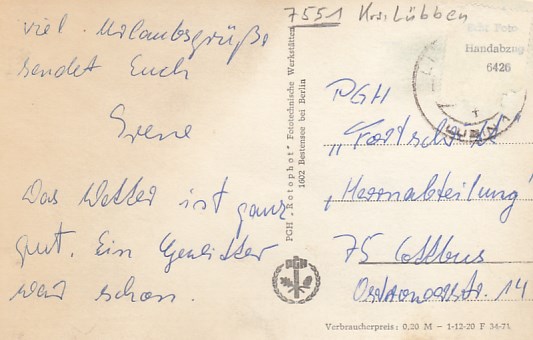 viel. Urlaubsgrüße
sendet Euch
Irene
Das Wetter ist ganz
gut. Ein Gewitter
war schon.
7551 Krs. Lübben
Echt Foto
Handabzug
6426
PGH „Rotophot" Fototechnische Werkstätten
1602 Bestensee bei Berlin
PGH
PGH
„Fortschritt"
„Herrnabteilung"
75 Cottbus
14
Verbraucherpreis: 0,20 M – 1-12-20 F 34-71